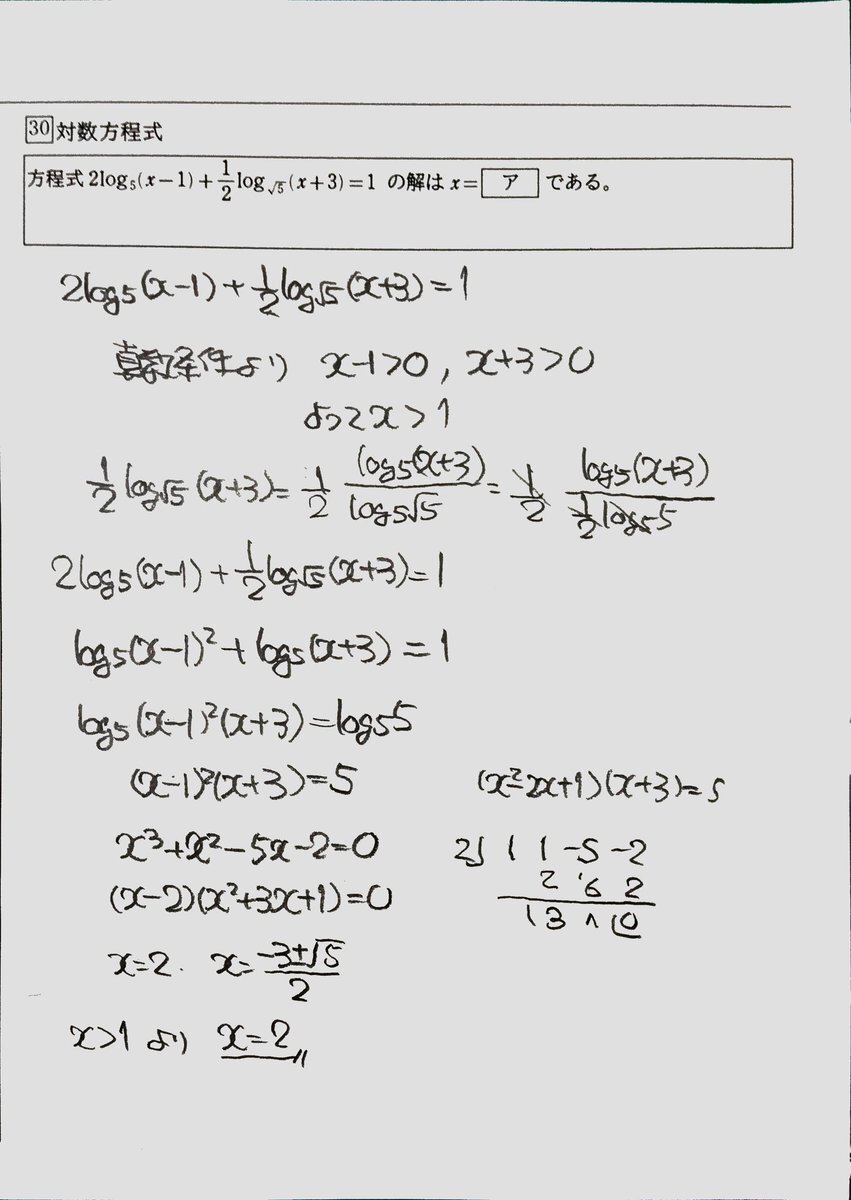 30 対数方程式
方程式 2log₅(x−1)+1/2 log_√5(x+3)=1 の解は x= ア である。
2log₅(x−1)+1/2 log_√5(x+3)=1
真数条件より x−1>0, x+3>0
よって x>1
1/2 log_√5(x+3)=1/2 log₅(x+3)/log₅√5=1/2 log₅(x+3)/(1/2 log₅5)
2log₅(x−1)+1/2 log_√5(x+3)=1
log₅(x−1)²+log₅(x+3)=1
log₅(x−1)²(x+3)=log₅5
(x−1)²(x+3)=5
(x²−2x+1)(x+3)=5
x³+x²−5x−2=0
(x−2)(x²+3x+1)=0
x=2. x=(−3±√5)/2
x>1 より x=2
2) 1 1 −5 −2
2 6 2
1 3 1 0